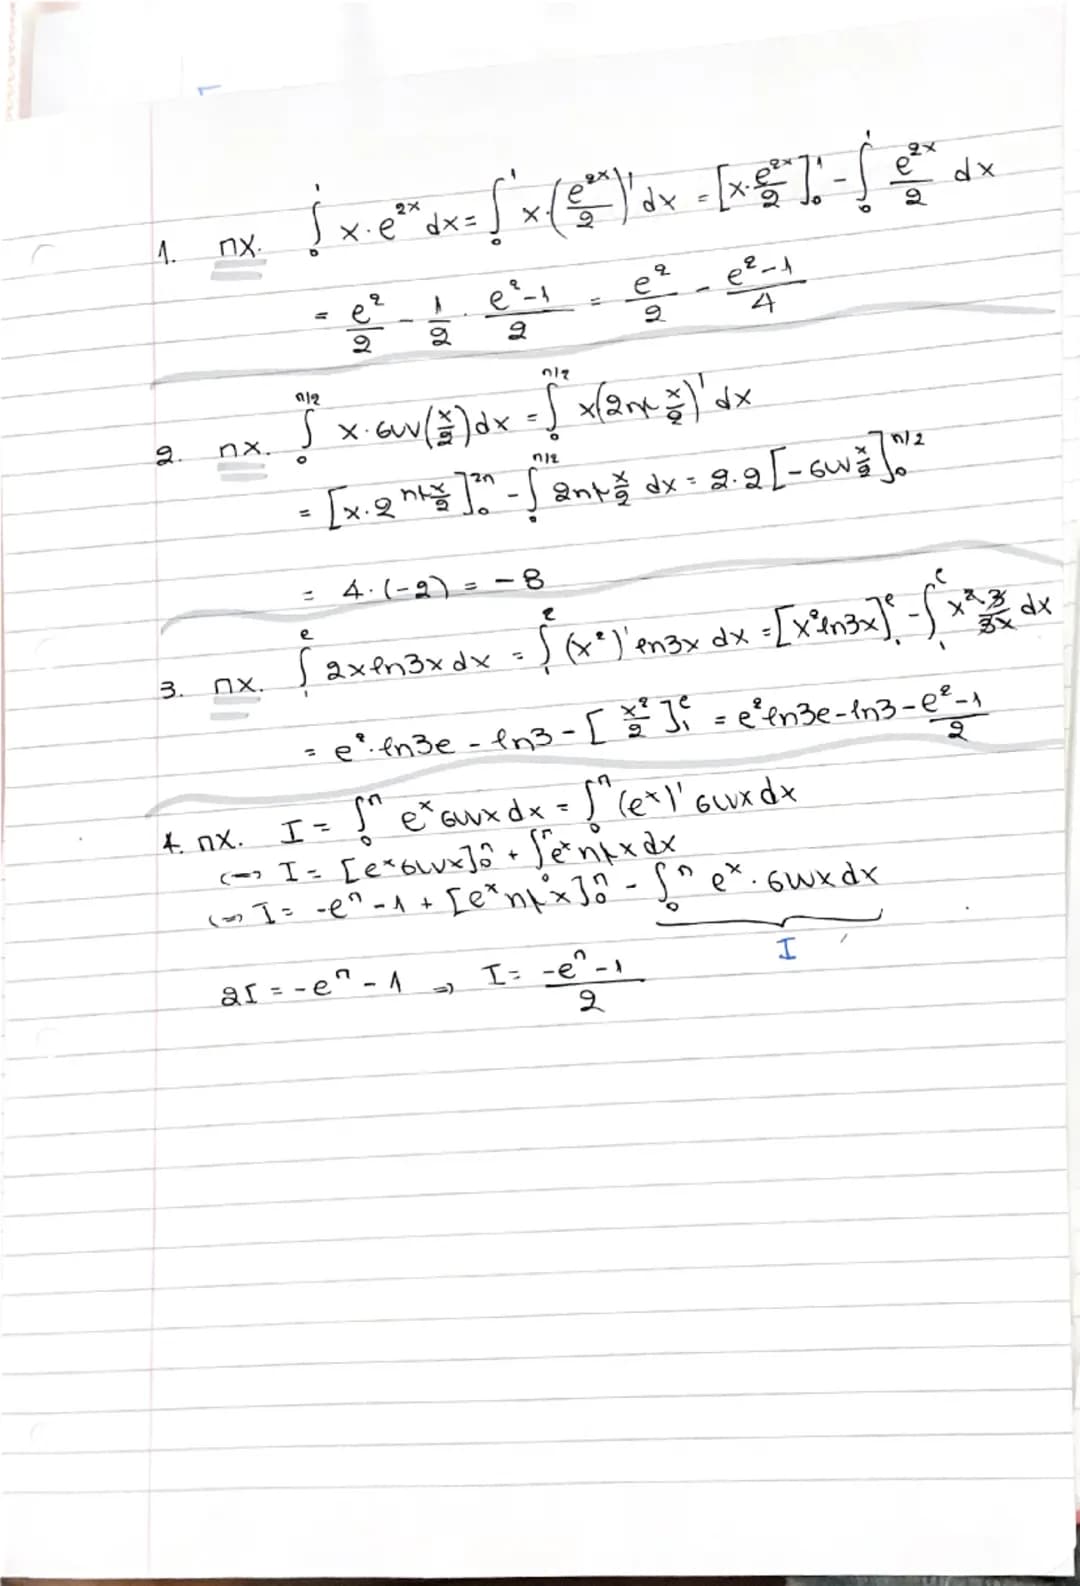 1. πχ. ∫₀¹ x·e^{2x} dx = ∫₀¹ x·(e^{2x}/2)' dx = [x·e^{2x}/2]₀¹ - ∫₀¹ e^{2x}/2 dx
= e²/2 - 1/2 · e²-1/2 = e²/2 - e²-1/4
2. πχ. ∫₀^{π/2} x·συν(x/2) dx = ∫₀^{π/2} x(2ημ x/2)' dx
= [x·2ημ x/2]₀^{2π} - ∫₀^{π/2} 2ημ x/2 dx = 2·2[-συν x/2]₀^{π/2}
= 4·(-2) = -8
3. πχ. ∫₁^e 2x ln3x dx = ∫₁^e (x²)' ln3x dx = [x² ln3x]₁^e - ∫₁^e x² 3/3x dx
= e²·ln3e - ln3 - [x²/2]₁^e = e² ln3e - ln3 - e²-1/2
4. πχ. I = ∫₀^π e^x συνx dx = ∫₀^π (e^x)' συνx dx
(=) I = [e^x συνx]₀^π + ∫₀^π e^x ημx dx
(=) I = -e^π - 1 + [e^x ημx]₀^π - ∫₀^π e^x · συνx dx
I
2I = -e^π - 1 => I = -e^π-1/2